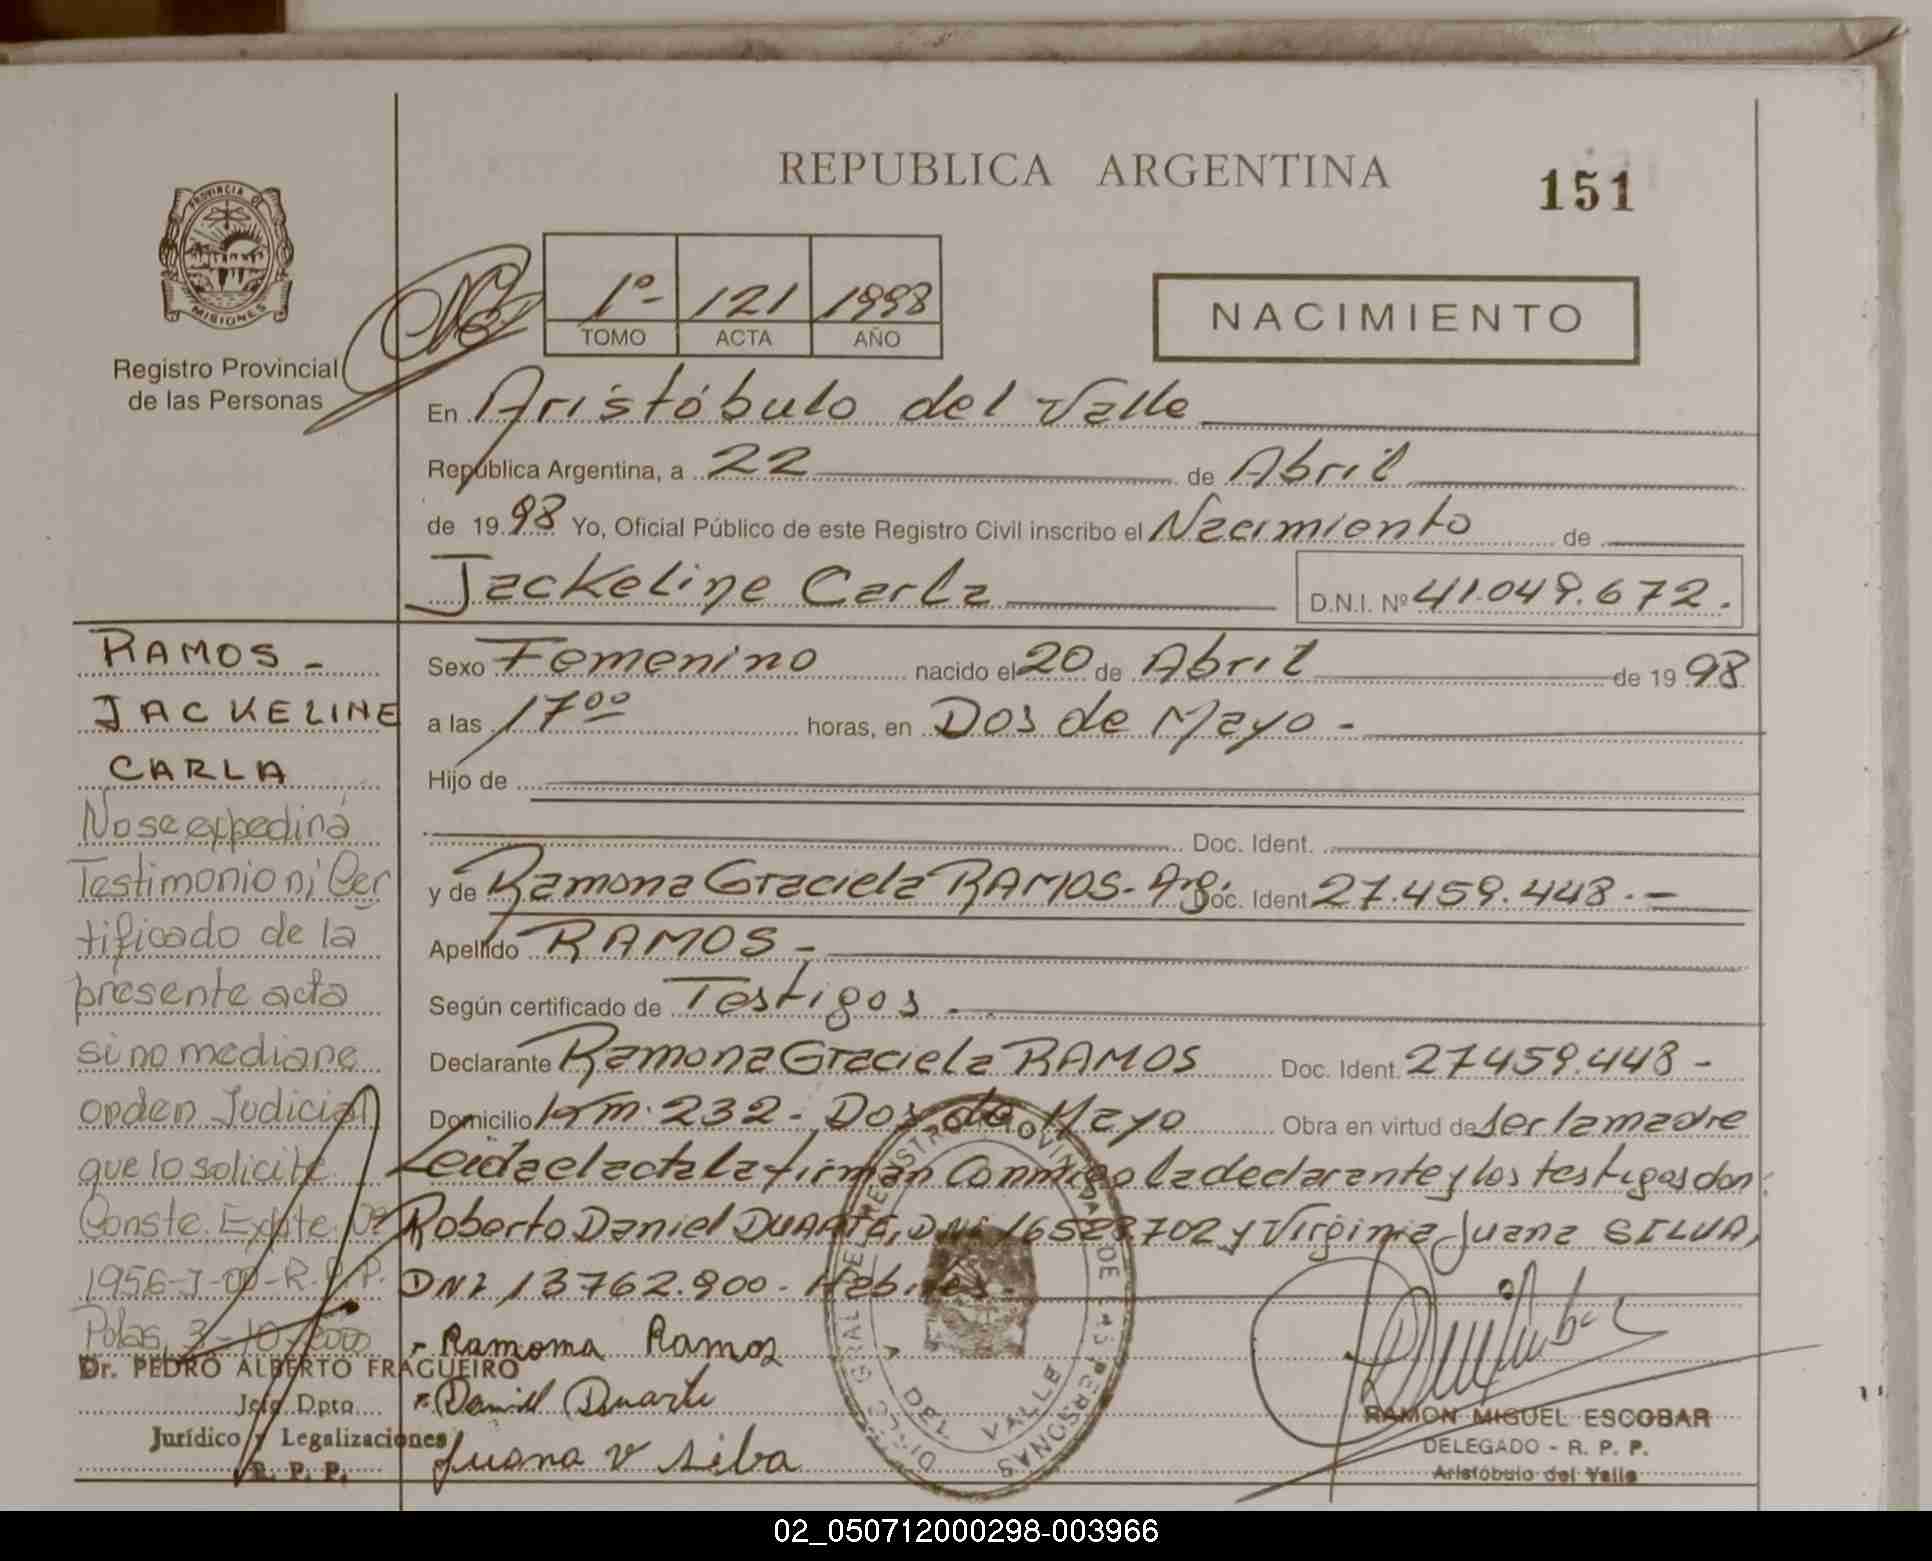 REPUBLICA ARGENTINA
151
PROVINCIA DE
MISIONES
Registro Provincial
de las Personas
1º- 121 1998
TOMO ACTA AÑO
NACIMIENTO
En Aristóbulo del Valle
República Argentina, a 22 de Abril
de 19 98 Yo, Oficial Público de este Registro Civil inscribo el Nacimiento de
Jackeline Carla D.N.I. Nº 41.049.672.
RAMOS -
JACKELINE
CARLA
No se expedirá
Testimonio ni Cer
tificado de la
presente acta
si no mediane
orden Judicial
que lo solicite
Conste. Expte. Nº
1956-J-00-R.P.P.
Pdas, 3-10-2000
Dr. PEDRO ALBERTO FRAGUEIRO
Jefe Dpto
Jurídico y Legalizaciones
R. P. P.
Sexo Femenino nacido el 20 de Abril de 19 98
a las 17⁰⁰ horas, en Dos de Mayo -
Hijo de
Doc. Ident.
y de Ramona Graciela RAMOS- Arg. Doc. Ident 27.459.448.-
Apellido RAMOS -
Según certificado de Testigos
Declarante Ramona Graciela RAMOS Doc. Ident. 27459.448-
Domicilio Km. 232- Dos de Mayo Obra en virtud de ser la madre
Leida el acta la firman conmigo la declarante y los testigos don:
Roberto Daniel DUARTE, DNI 16523.702 y Virginia Juana SILVA,
DNI 13762.900- Hábiles.
Ramoma Ramos
Daniel Duarte
Juana V silba
DIREC. GRAL DEL REGISTRO PROVINCIAL DE LAS PERSONAS
DEL VALLE
RAMON MIGUEL ESCOBAR
DELEGADO - R. P. P.
Aristóbulo del Valle
02_050712000298-003966